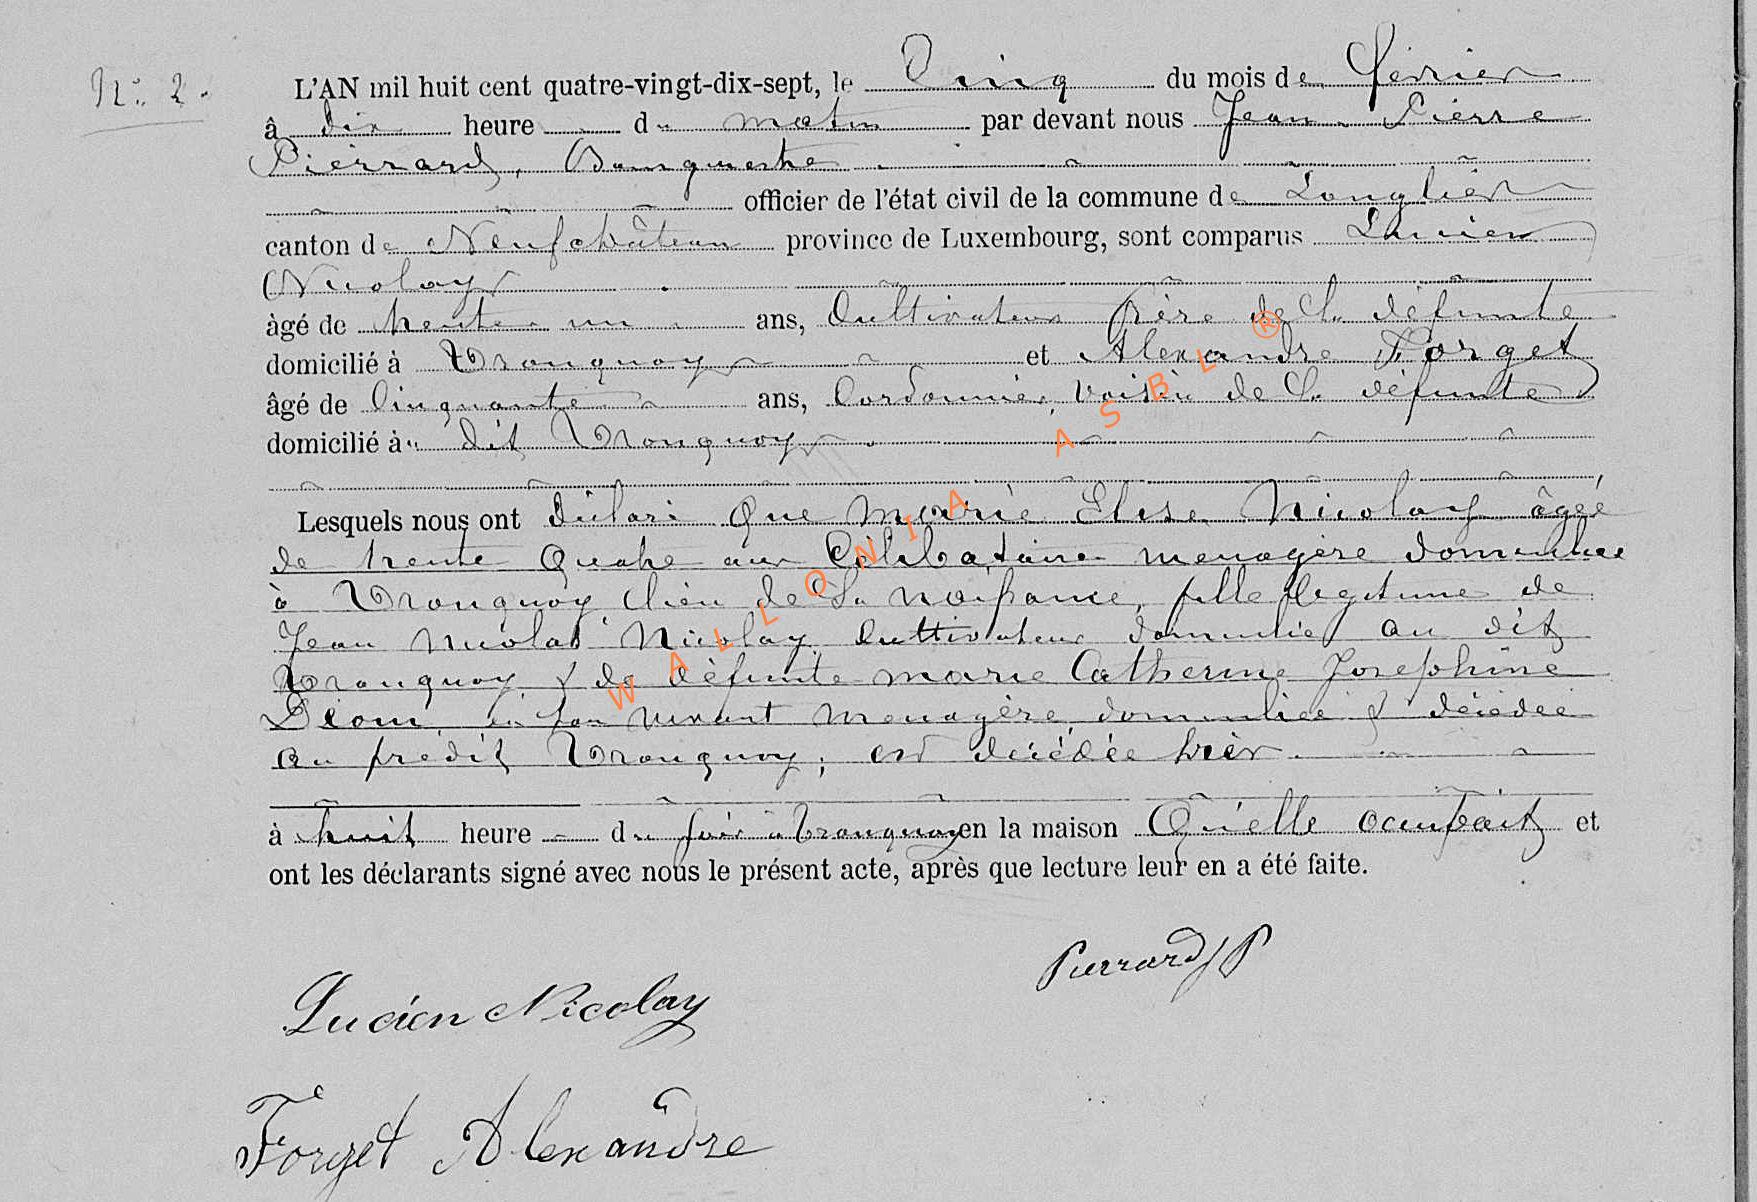 N° 2.
L'AN mil huit cent quatre-vingt-dix-sept, le Cinq du mois de février
à dix heure du matin par devant nous Jean Pierre
Pierrard, Bourgmestre
officier de l'état civil de la commune de Longlier
canton de Neufchâteau province de Luxembourg, sont comparus Lucien
Nicolay
âgé de trente un ans, Cultivateur frère de la défunte
domicilié à Tronquoy et Alexandre Forget
âgé de Cinquante ans, Cordonnier, voisin de la défunte
domicilié au dit Tronquoy
Lesquels nous ont déclaré que Marie Elise Nicolay âgée
de trente quatre ans Célibataire menagère domiciliée
à Tronquoy lieu de sa naissance, fille légitime de
Jean Nicolas Nicolay, Cultivateur domicilié au dit
Tronquoy & de défunte marie Catherine Josephine
en son vivant menagère, domiciliée & décédée
au predit Tronquoy; est décédée hier
à huit heure du soir à Tronquoy en la maison Qu'elle occupait et
ont les déclarants signé avec nous le présent acte, après que lecture leur en a été faite.
Pierrard JP
Lucien Nicolay
Forget Alexandre
WALLONIA ASBL ®